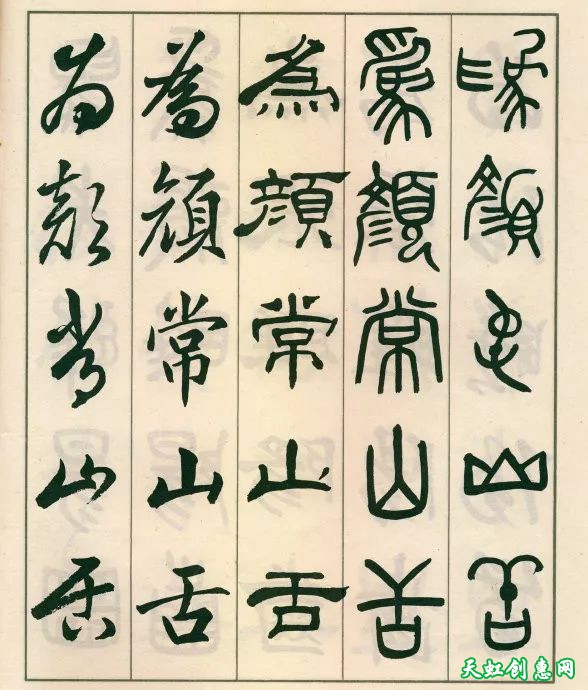 為顏常山舌
為顏常山舌
為顏常山舌
為顏常山舌
為顏常山舌
天虹创惠网